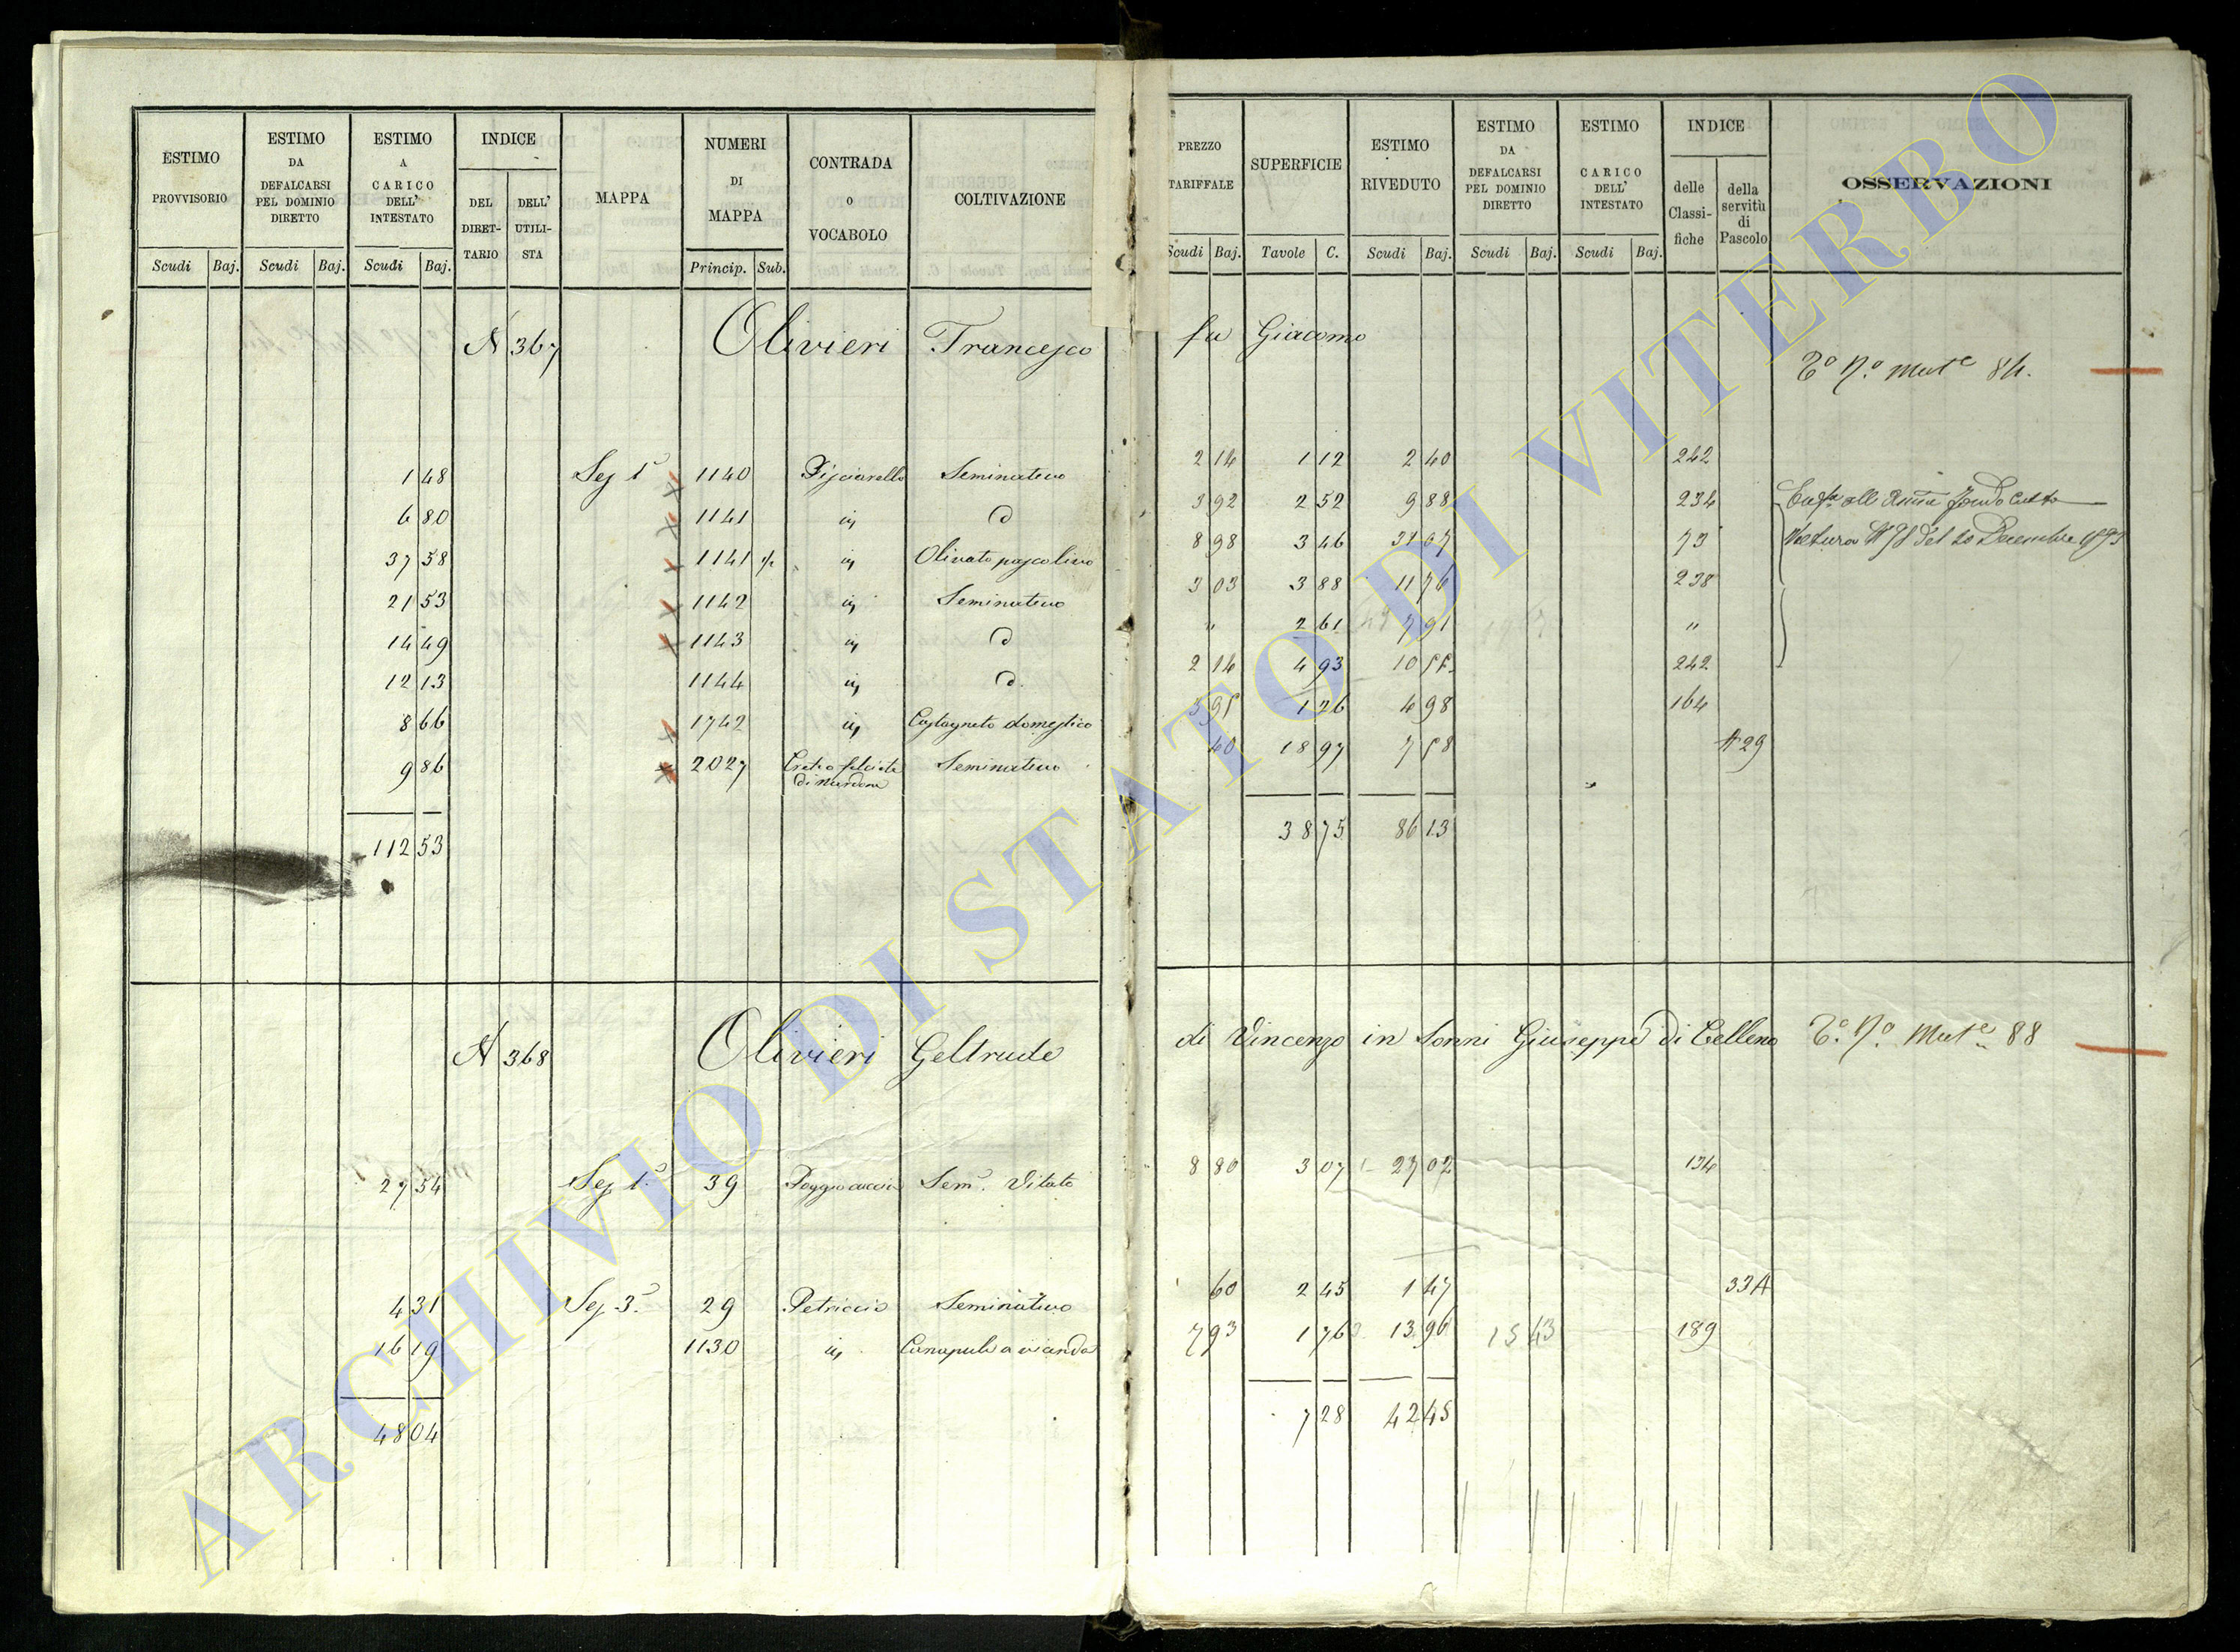 ESTIMO PROVVISORIO | ESTIMO DA DEFALCARSI PEL DOMINIO DIRETTO | ESTIMO A CARICO DELL' INTESTATO | INDICE DEL DIRETTARIO | DELL' UTILISTA | MAPPA | NUMERI DI MAPPA | CONTRADA O VOCABOLO | COLTIVAZIONE | PREZZO TARIFFALE | SUPERFICIE | ESTIMO RIVEDUTO | ESTIMO DA DEFALCARSI PEL DOMINIO DIRETTO | ESTIMO CARICO DELL' INTESTATO | INDICE delle Classifiche | della servitù di Pascolo | OSSERVAZIONI
Scudi Baj. | Scudi Baj. | Scudi Baj. | Princip. Sub. | Scudi Baj. | Tavole C. | Scudi Baj. | Scudi Baj. | Scudi Baj.
N 367 Olivieri Francesco fu Giacomo
84.
1 48 | Sez 1ª | 1140 | Seminativo | 2 14 | 1 12 | 2 40 | 242
6 80 | 1141 | id | d | 3 92 | 2 52 | 9 88 | 234
37 58 | 1141 | id | Olivato pascolivo | 8 98 | 3 46 | 31 07 | 73
21 53 | 1142 | id | Seminativo | 3 03 | 3 88 | 11 76 | 238
14 49 | 1143 | id | d | " | 2 61 | 7 91 | "
12 13 | 1144 | id | d. | 2 14 | 4 93 | 10 55 | 242
8 66 | 1742 | id | Castagneto domestico | 3 95 | 1 26 | 4 98 | 164
9 86 | 2027 | Seminativo | 40 | 18 97 | 7 58 | 29
112 53 | 38 75 | 86 13
del 20 Decembre
N 368 Olivieri Geltrude di Vincenzo in Sonni Giuseppe di Celleno
88
27 54 | Sez 1ª | 39 | Sem. Vitato | 8 80 | 3 07 | 27 02 | 134
4 31 | Sez 3ª | 29 | Petriccio | Seminativo | 60 | 2 45 | 1 47 | 33A
16 19 | 1130 | id | 7 93 | 1 76 | 13 96 | 15 43 | 189
48 04 | 7 28 | 42 45
ARCHIVIO DI STATO DI VITERBO